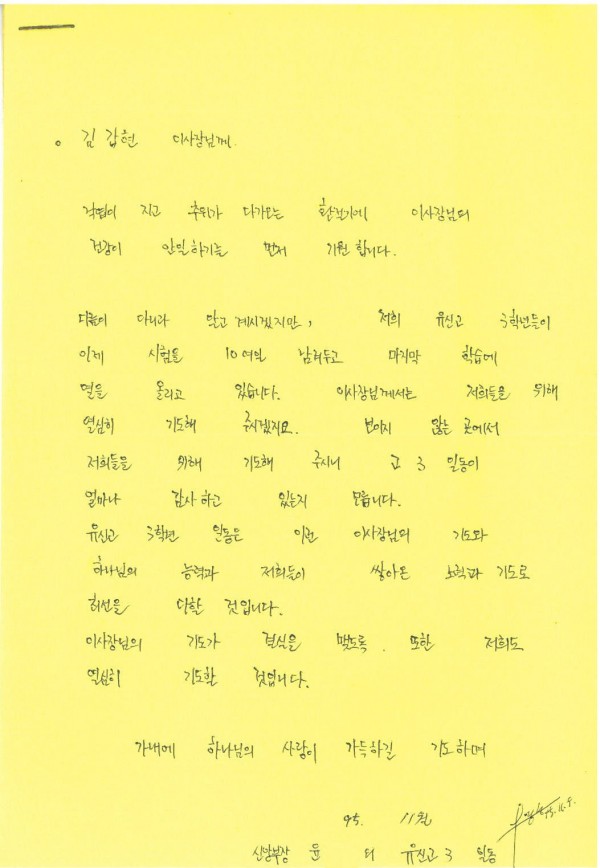 。 김 갑현 이사장님께.
낙엽이 지고 추위가 다가오는 환절기에 이사장님의
건강이 안일하기를 먼저 기원 합니다.
다름이 아니라 알고 계시겠지만, 저희 유신고 3학년들이
이제 시험을 10여일 남겨두고 마지막 학습에
열을 올리고 있습니다. 이사장님께서는 저희들을 위해
열심히 기도해 주시겠지요. 보이지 않는 곳에서
저희들을 위해 기도해 주시니 고 3 일동이
얼마나 감사하고 있는지 모릅니다.
유신고 3학년 일동은 이런 이사장님의 기도와
하나님의 능력과 저희들이 쌓아온 노력과 기도로
최선을 다할 것입니다.
이사장님의 기도가 결실을 맺도록. 또한 저희도
열심히 기도할 것입니다.
가내에 하나님의 사랑이 가득하길 기도하며
95. 11월
신앙부장 윤 유신고 3 일동